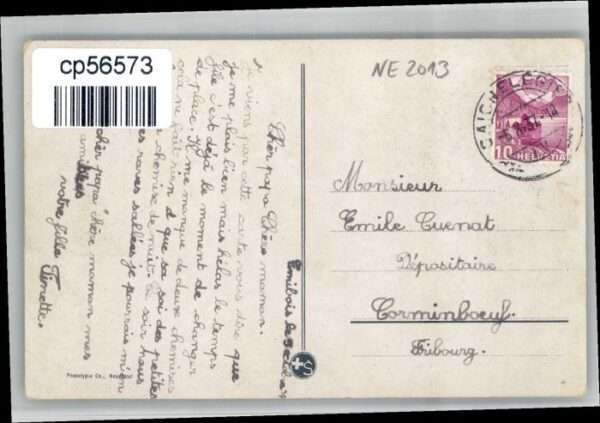 cp56573
NE 2013
SAIGNELÉGIER
10
HELVETIA
Monsieur
Emile Cuenat
Dépositaire
Corminboeuf.
Fribourg.
Emibois le
Chèr papa Chère maman.
Je viens par cette carte vous dire que
je me plais bien mais hélas le temps
file c'est déjà le moment de changer
de place. Il me manque de deux chemises
ça ne fait rien à que sa soi des petites
chemise de nuit. Ce soir nous
raves sallées je pourrais m'en
chèr papa chère maman mes
amitiées
votre fille
Ginette.
Phototypie Co., Neuchâtel